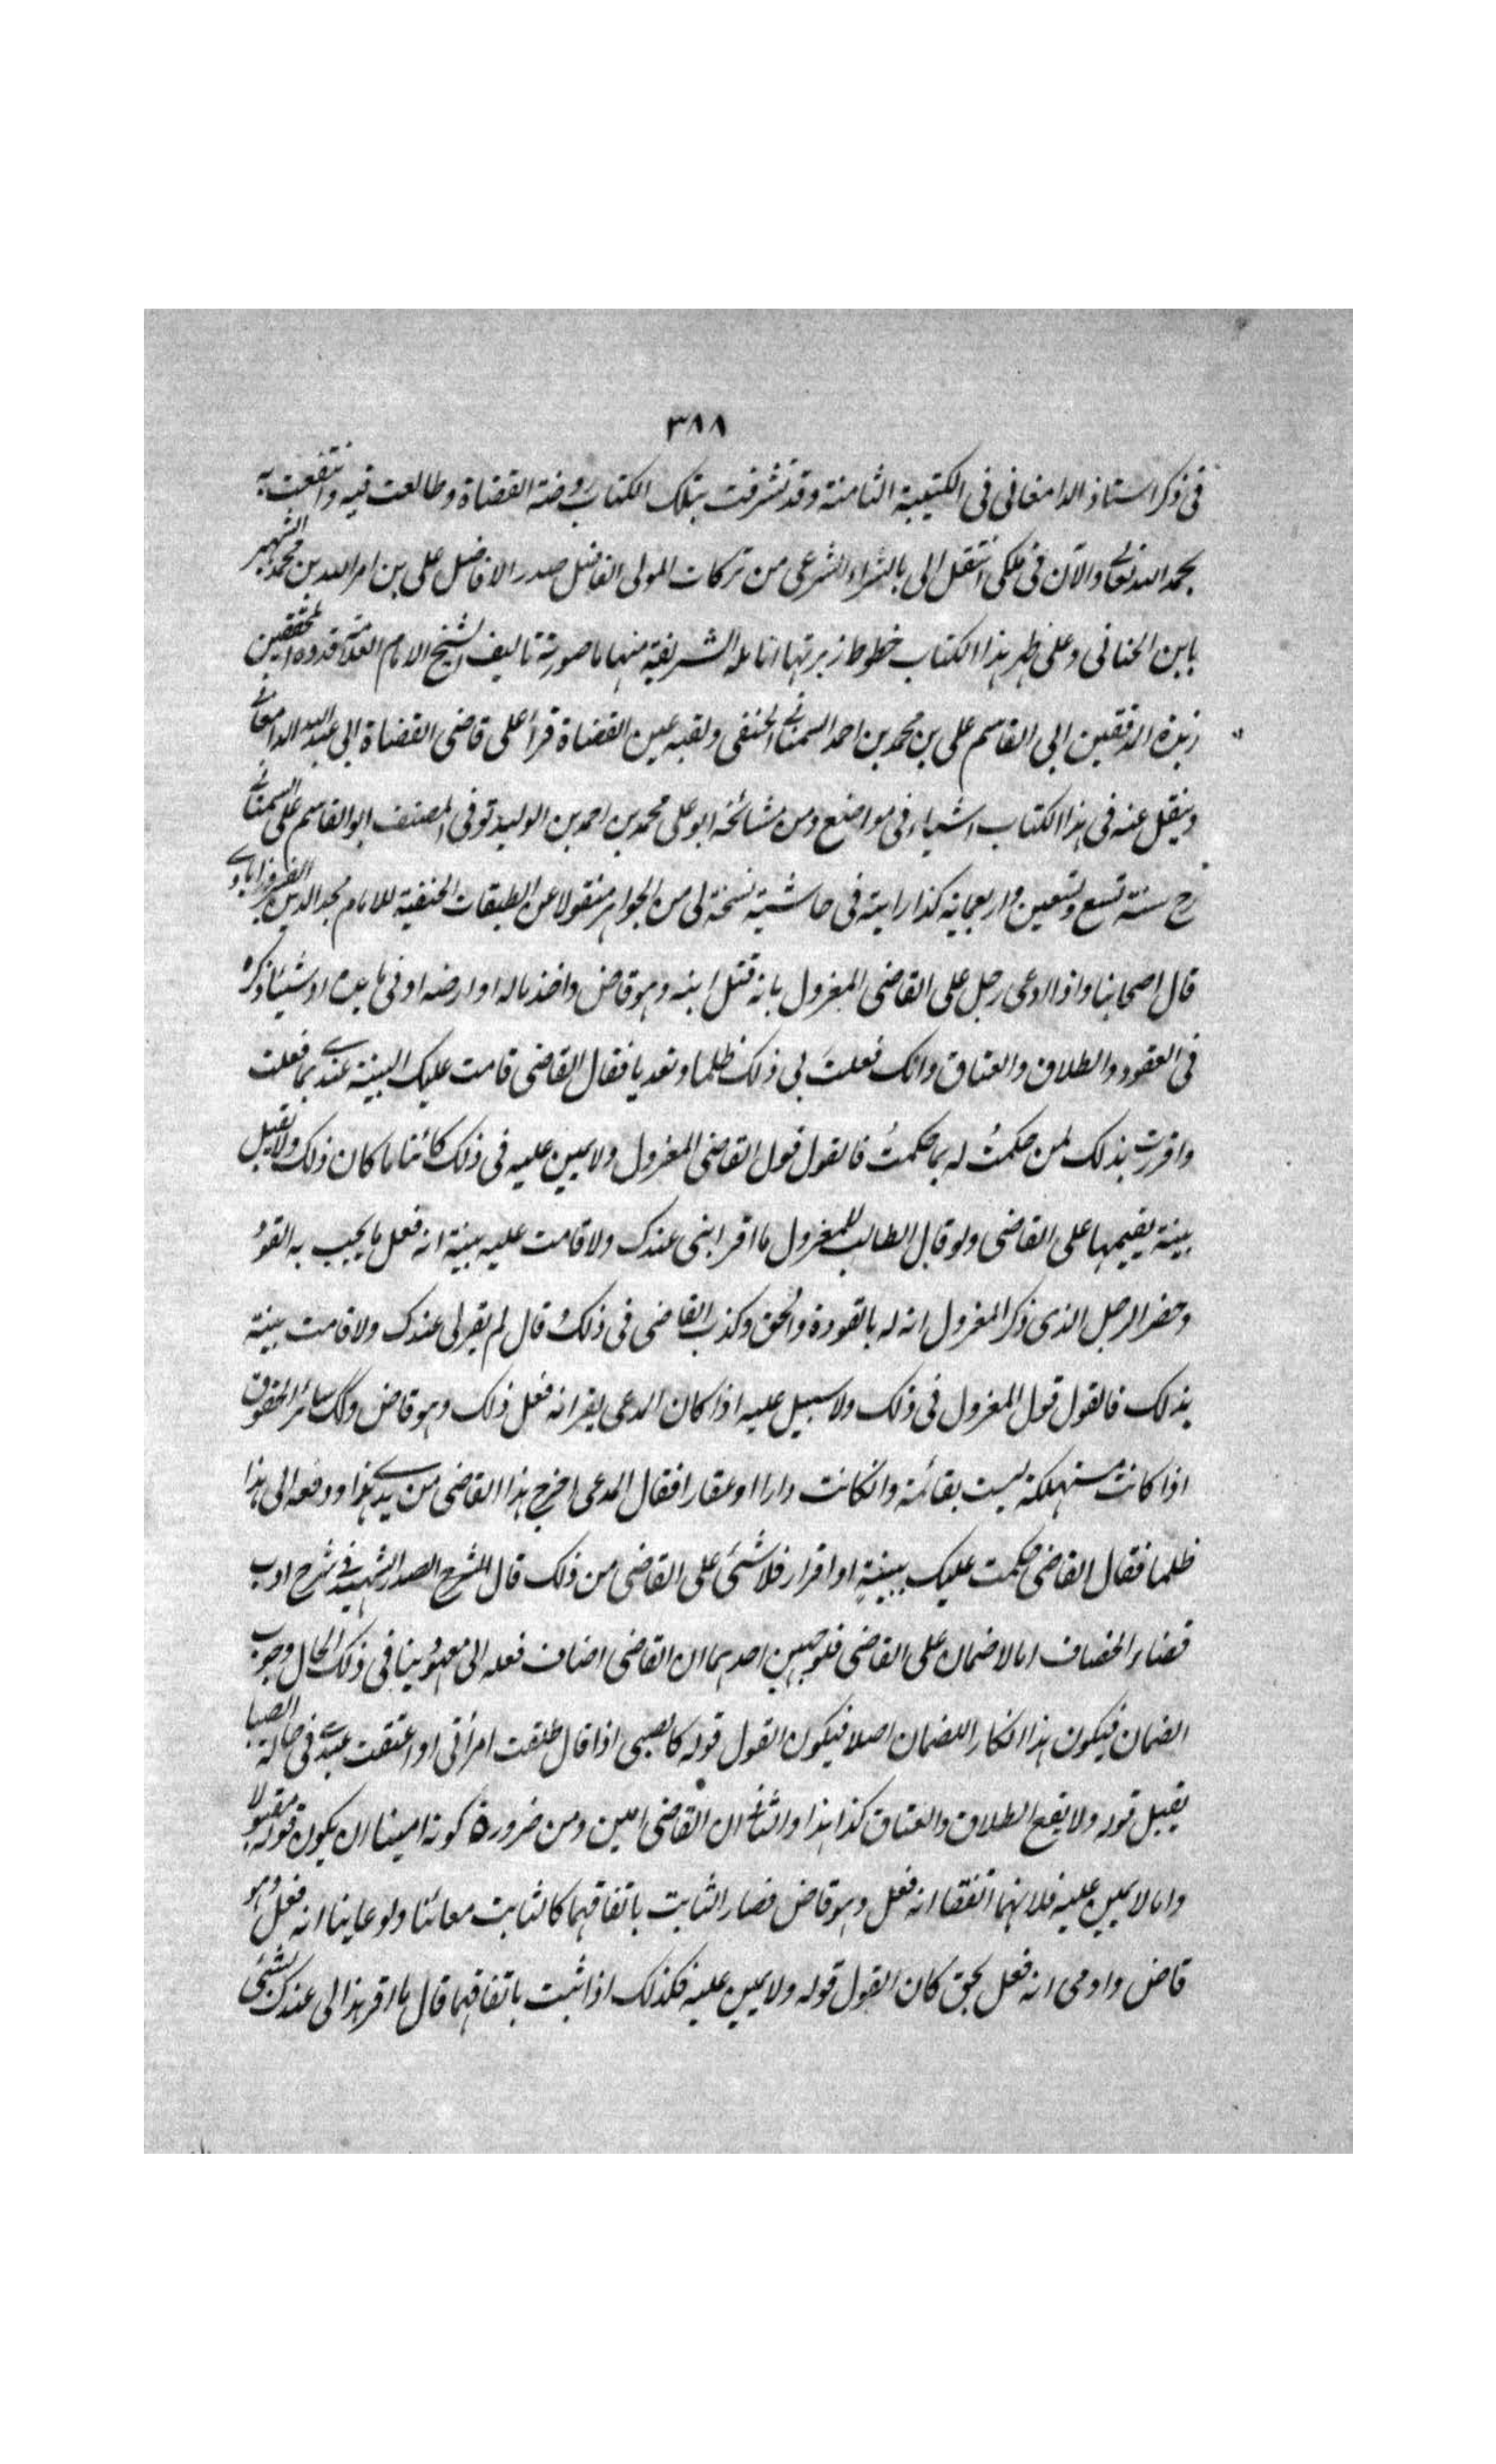 ٣٨٨
فى ذكر استاذ الدامغانى فى الكتيبة الثامنة وقد تشرفت بتلك الكتاب روضة القضاة وطالعت فيه وانتفعت به
بحمد الله تعالى والآن فى ملكى انتقل الى بالشراء الشرعى من تركات المولى الفاضل صدر الافاضل على بن امر الله بن محمد الشهير
بابن الحنائى وعلى ظهر هذا الكتاب خطوط زبرتها انامله الشريفة منها ما صورته تاليف الشيخ الامام العلامة قدوة المحققين
زبدة المدققين ابى القاسم على بن محمد بن احمد السمنانى الحنفى ولقبه عين القضاة قرأ على قاضى القضاة ابى عبد الله الدامغانى
وينقل عنه فى هذا الكتاب اشياء فى مواضع ومن مشائخه ابو على محمد بن احمد بن الوليد توفى المصنف ابو القاسم على السمنانى
رح سنة تسع وتسعين واربعمائة كذا رايته فى حاشية نسخة لى من الجواهر منقولا عن الطبقات الحنفية للامام مجد الدين الفيروزابادى
قال اصحابنا واذا ادعى رجل على القاضى المعزول بانه قتل ابنه وهو قاض واخذ ماله او ارضه او فى يده او شيئا ذكره
فى العقود والطلاق والعتاق وانك فعلت بى ذلك ظلما وتعديا فقال القاضى قامت عليك البينة عندى بما فعلت
واقررت بذلك لمن حكمتُ له بما حكمتُ فالقول قول القاضى المعزول ولا يمين عليه فى ذلك كائنا ما كان ذلك ولا تقبل
بينة يقيمها على القاضى ولو قال الطالب للمعزول ما اقر ابنى عندك ولا قامت عليه بينة انه فعل ما يجب به القود
وحضر الرجل الذى ذكر المعزول انه له بالقود والحق وكذب القاضى فى ذلك قال لم يقر لى عندك ولا قامت بينة
بذلك فالقول قول المعزول فى ذلك ولا سبيل عليه اذا كان المدعى يقر انه فعل ذلك وهو قاض وكك سائر الحقوق
اذا كانت مستهلكة ليست بقائمة وان كانت دارا او عقارا فقال المدعى اخرج هذا القاضى من يدى هذا ودفعه الى هذا
ظلما فقال القاضى حكمت عليك ببينةٍ او اقرار فلا شئ على القاضى من ذلك قال الشرح الصدر الشهيد فى شرح ادب
قضاء الخصاف اما لا ضمان على القاضى فلوجهين احدهما ان القاضى اضاف فعله الى معهود ينافى ذلك الحال وجوب
الضمان فيكون هذا انكار اللضمان اصلا فيكون القول قوله كالصبى اذا قال طلقت امرأتى او اعتقت عبدى فى حالة الصبا
يقبل قوله ولا يقع الطلاق والعتاق كذا هذا والثانى ان القاضى امين ومن ضرورة كونه امينا ان يكون قوله مقبولا
واما لا يمين عليه فلانهما اتفقا انه فعل وهو قاض فصار الثابت باتفاقهما كالثابت معائنا ولو عاينا انه فعل وهو
قاض وادعى انه فعل بحق كان القول قوله ولا يمين عليه فكذلك اذا ثبت باتفاقهما قال ما اقر هذا لى عندك بشئ